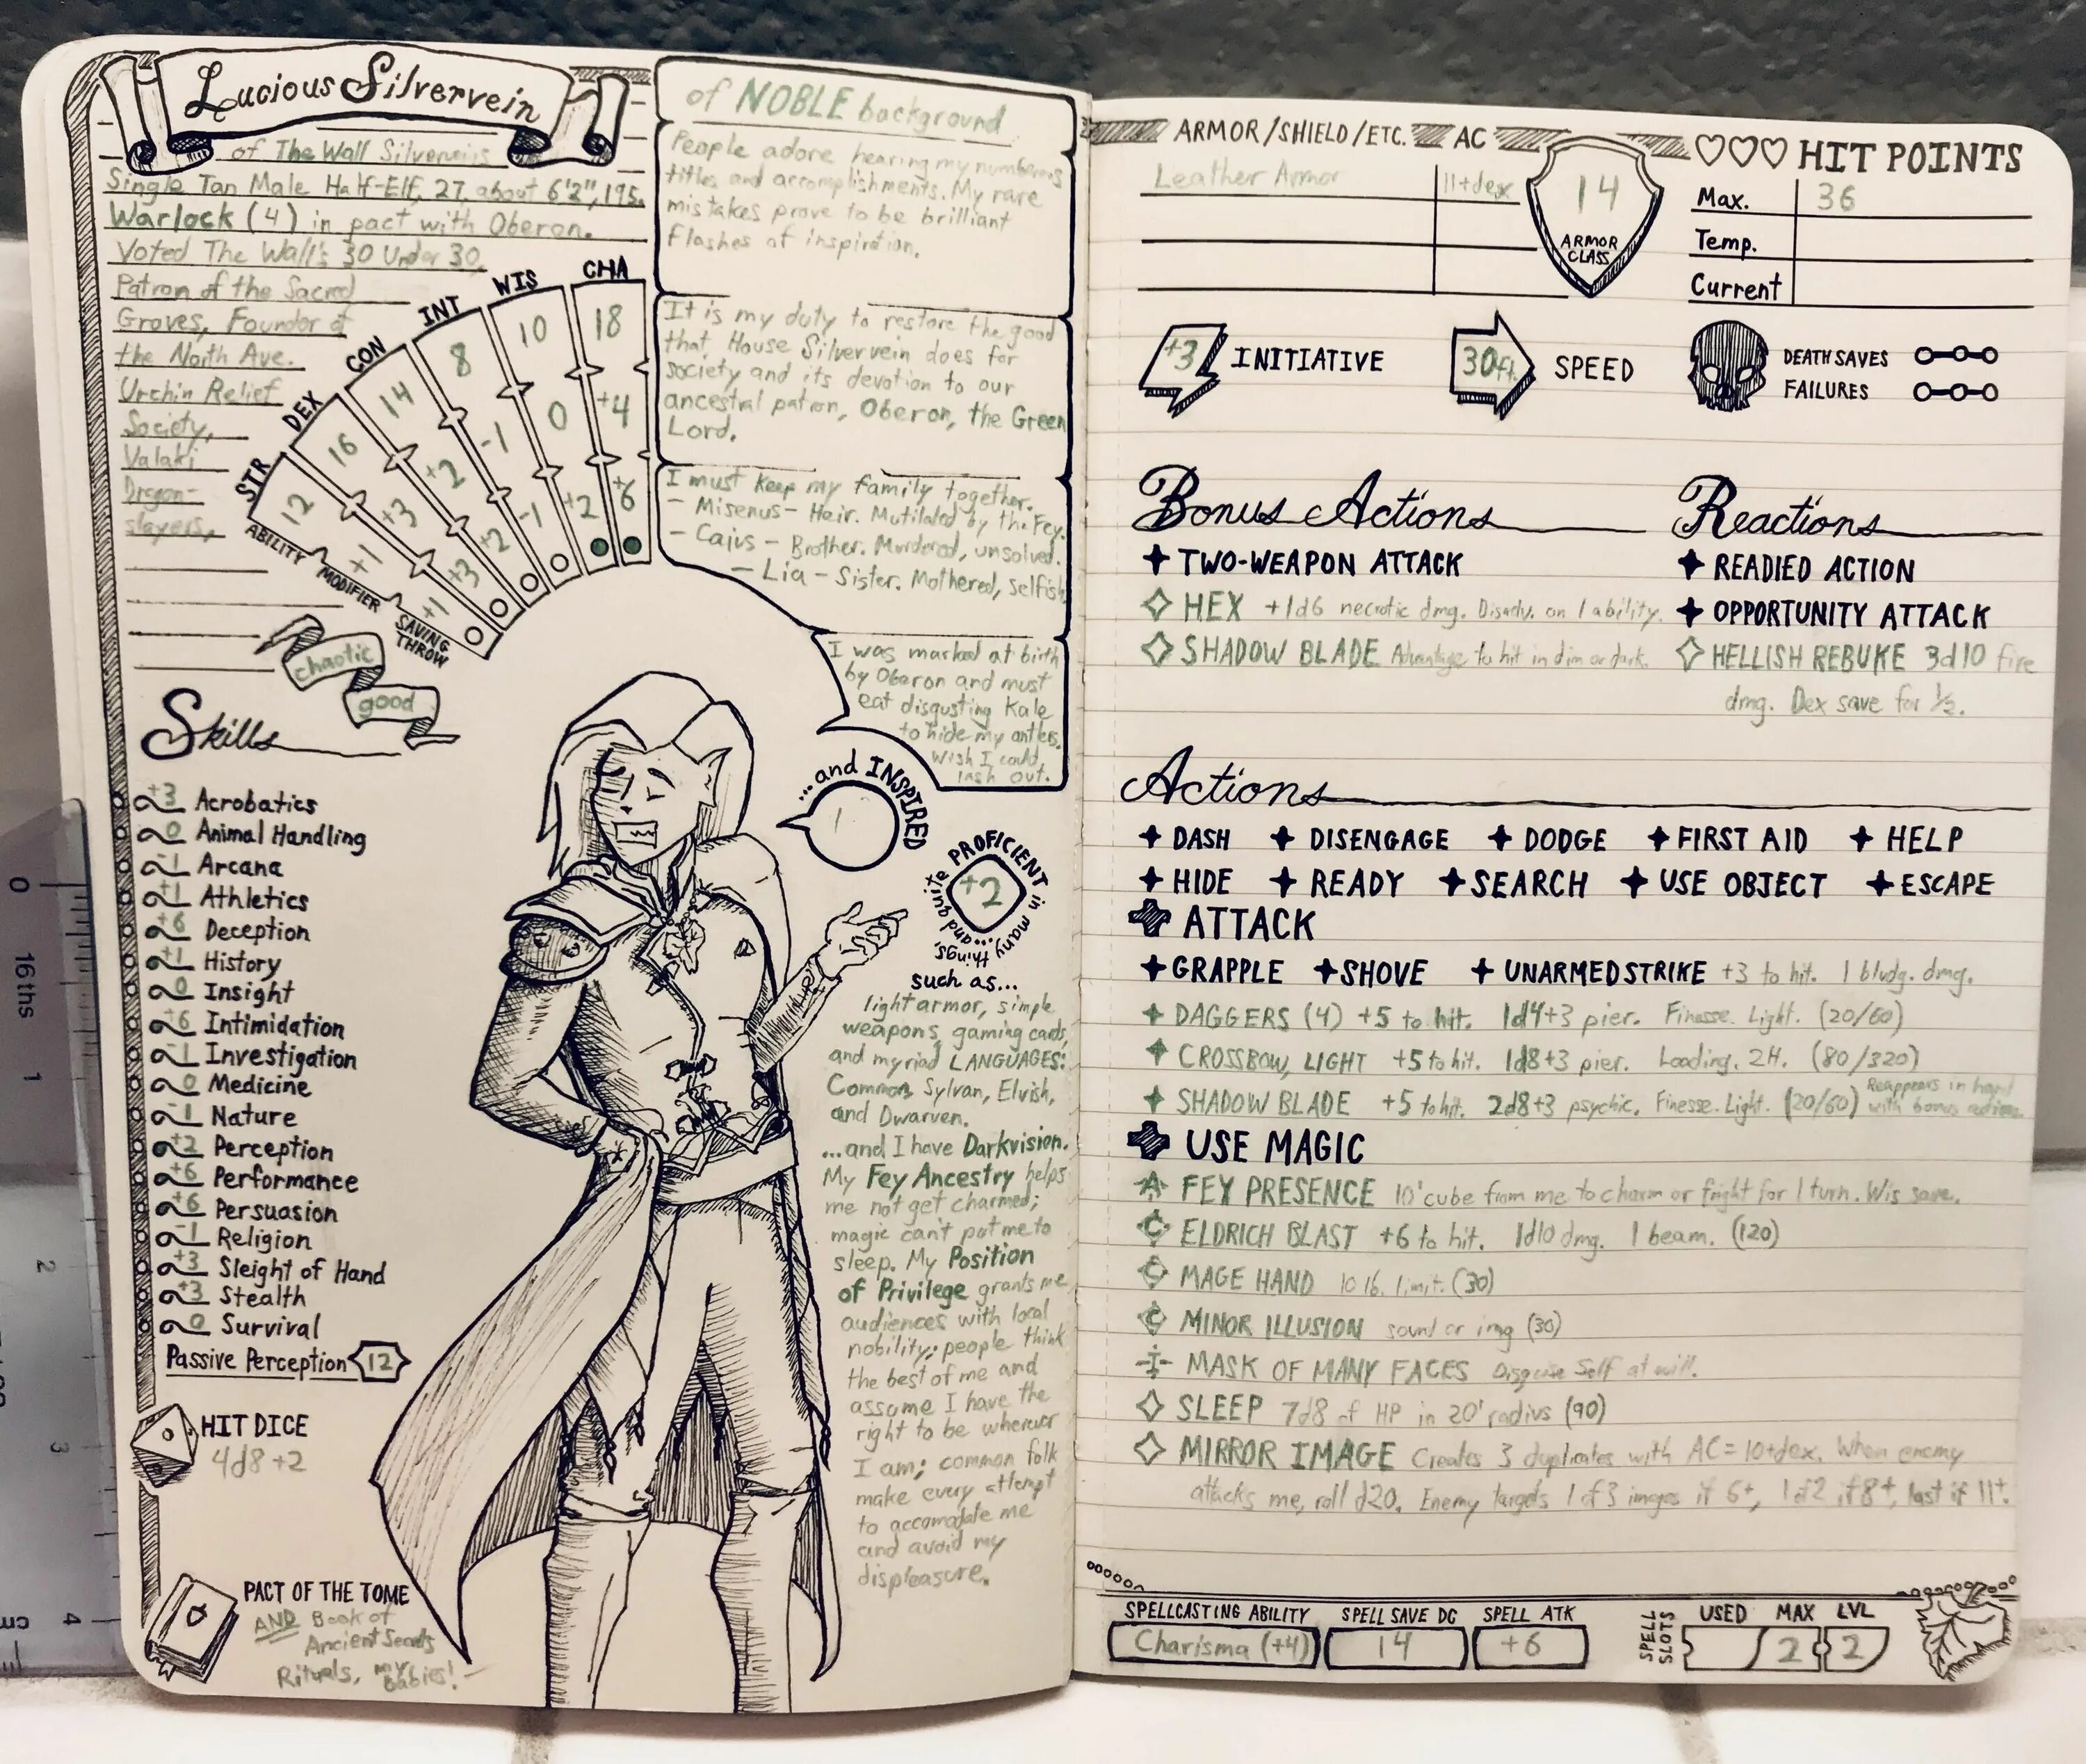 Lucious Silvervein
of The Wall Silverveins
Single Tan Male Half-Elf, 27, about 6'2", 195.
Warlock (4) in pact with Oberon.
Voted The Wall's 30 Under 30,
Patron of the Sacred
Groves, Founder of
the North Ave.
Urchin Relief
Society,
Valaki
Dragon-
slayers,
STR DEX CON INT WIS CHA
12 16 14 8 10 18
+1 +3 +2 -1 0 +4
+1 +3 +2 -1 +2 +6
ABILITY
MODIFIER
SAVING
THROW
chaotic
good
of NOBLE background
People adore hearing my numberous
titles and accomplishments. My rare
mistakes prove to be brilliant
flashes of inspiration.
It is my duty to restore the good
that House Silvervein does for
society and its devotion to our
ancestral patron, Oberon, the Green
Lord.
I must keep my family together.
- Misenus - Heir. Mutilated by the Fey.
- Caius - Brother. Murdered, unsolved.
- Lia - Sister. Mothered, selfish
I was marked at birth
by Oberon and must
eat disgusting kale
to hide my antlers.
Wish I could
lash out.
...and INSPIRED
PROFICIENT in many things, ...and quite
+2
such as...
light armor, simple
weapons, gaming cards,
and myriad LANGUAGES:
Common, Sylvan, Elvish,
and Dwarven.
...and I have Darkvision.
My Fey Ancestry helps
me not get charmed;
magic can't put me to
sleep. My Position
of Privilege grants me
audiences with local
nobility; people think
the best of me and
assume I have the
right to be wherever
I am; common folk
make every attempt
to accomodate me
and avoid my
displeasure.
Skills
+3 Acrobatics
0 Animal Handling
-1 Arcana
+1 Athletics
+6 Deception
+1 History
0 Insight
+6 Intimidation
-1 Investigation
0 Medicine
-1 Nature
+2 Perception
+6 Performance
+6 Persuasion
-1 Religion
+3 Sleight of Hand
+3 Stealth
0 Survival
Passive Perception 12
HIT DICE
4d8+2
PACT OF THE TOME
AND Book of
Ancient Secrets
Rituals, my babies!
ARMOR/SHIELD/ETC. AC
Leather Armor 11+dex
14
ARMOR
CLASS
HIT POINTS
Max. 36
Temp.
Current
+3 INITIATIVE
30ft. SPEED
DEATH SAVES
FAILURES
Bonus Actions
TWO-WEAPON ATTACK
HEX +1d6 necrotic dmg. Disadv. on 1 ability.
SHADOW BLADE Advantage to hit in dim or dark.
Reactions
READIED ACTION
OPPORTUNITY ATTACK
HELLISH REBUKE 3d10 fire
dmg. Dex save for 1/2.
Actions
DASH DISENGAGE DODGE FIRST AID HELP
HIDE READY SEARCH USE OBJECT ESCAPE
ATTACK
GRAPPLE SHOVE UNARMED STRIKE +3 to hit. 1 bludg. dmg.
DAGGERS (4) +5 to hit. 1d4+3 pier. Finesse. Light. (20/60)
CROSSBOW, LIGHT +5 to hit. 1d8+3 pier. Loading. 2H. (80/320)
SHADOW BLADE +5 to hit. 2d8+3 psychic. Finesse. Light. (20/60) Reappears in hand
with bonus action.
USE MAGIC
A FEY PRESENCE 10' cube from me to charm or fright for 1 turn. Wis save.
C ELDRICH BLAST +6 to hit. 1d10 dmg. 1 beam. (120)
C MAGE HAND 10 lb. limit. (30)
C MINOR ILLUSION sound or img (30)
I MASK OF MANY FACES Disguise Self at will.
SLEEP 7d8 of HP in 20' radius (90)
MIRROR IMAGE Creates 3 duplicates with AC=10+dex. When enemy
attacks me, roll d20. Enemy targets 1 of 3 images if 6+, 1 of 2 if 8+, last if 11+.
SPELLCASTING ABILITY SPELL SAVE DC SPELL ATK
Charisma (+4) 14 +6
SPELL
SLOTS
USED MAX LVL
2 2
0
16ths
1
2
3
4
cm